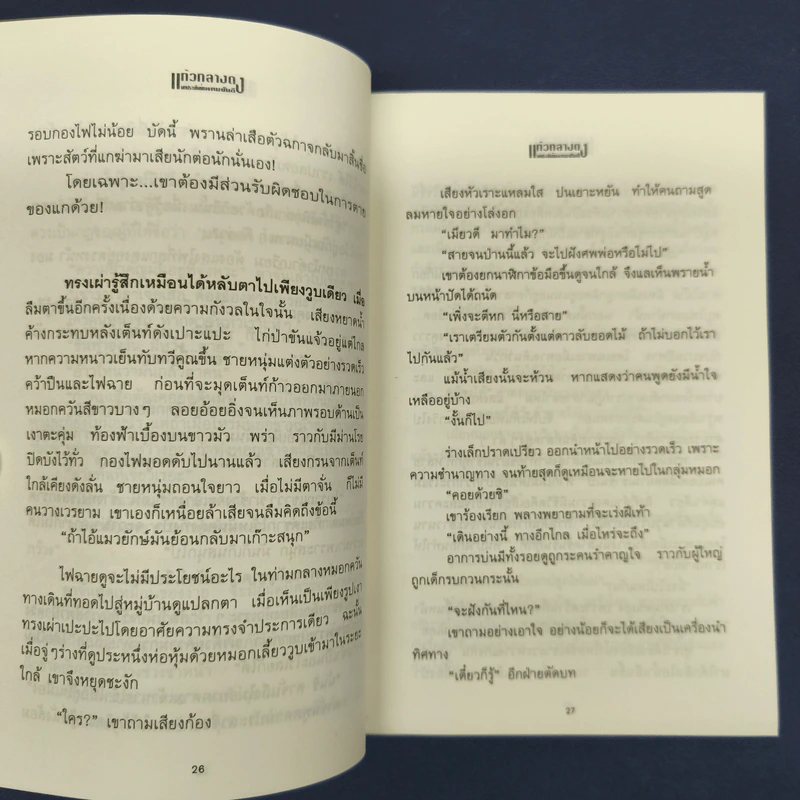 แก้วกลางดง
รอบกองไฟไม่น้อย บัดนี้ พรานล่าเสือตัวฉกาจกลับมาสิ้นชื่อ
เพราะสัตว์ที่แกฆ่ามาเสียนักต่อนักนั่นเอง!
โดยเฉพาะ...เขาต้องมีส่วนรับผิดชอบในการตาย
ของแกด้วย!
ทรงเผ่ารู้สึกเหมือนได้หลับตาไปเพียงวูบเดียว เมื่อ
ลืมตาขึ้นอีกครั้งเนื่องด้วยความกังวลในใจนั้น เสียงหยาดน้ำ
ค้างกระทบหลังเต็นท์ดังเปาะแปะ ไก่ป่าขันแจ้วอยู่แต่ไกล
หากความหนาวเย็นทับทวีคูณขึ้น ชายหนุ่มแต่งตัวอย่างรวดเร็ว
คว้าปืนและไฟฉาย ก่อนที่จะมุดเต็นท์ก้าวออกมาภายนอก
หมอกควันสีขาวบางๆ ลอยอ้อยอิ่งจนเห็นภาพรอบด้านเป็น
เงาตะคุ่ม ท้องฟ้าเบื้องบนขาวมัว พร่า ราวกับมีม่านโรย
ปิดบังไว้ทั่ว กองไฟมอดดับไปนานแล้ว เสียงกรนจากเต็นท์
ใกล้เคียงดังลั่น ชายหนุ่มถอนใจยาว เมื่อไม่มีตาจั่น ก็ไม่มี
คนวางเวรยาม เขาเองก็เหนื่อยล้าเสียจนลืมคิดถึงข้อนี้
“ถ้าไอ้แมวยักษ์มันย้อนกลับมาเก๊าะสนุก”
ไฟฉายดูจะไม่มีประโยชน์อะไร ในท่ามกลางหมอกควัน
ทางเดินที่ทอดไปสู่หมู่บ้านดูแปลกตา เมื่อเห็นเป็นเพียงรูปเงา
ทรงเผ่าเปะปะไปโดยอาศัยความทรงจำประการเดียว ฉะนั้น
เมื่อจู่ๆร่างที่ดูประหนึ่งห่อหุ้มด้วยหมอกเลี้ยววูบเข้ามาในระยะ
ใกล้ เขาจึงหยุดชะงัก
“ใคร?” เขาถามเสียงก้อง
26
แก้วกลางดง
เสียงหัวเราะแหลมใส ปนเยาะหยัน ทำให้คนถามสูด
ลมหายใจอย่างโล่งอก
“เมียวดี มาทำไม?”
“สายจนป่านนี้แล้ว จะไปฝังศพพ่อหรือไม่ไป”
เขาต้องยกนาฬิกาข้อมือขึ้นดูจนใกล้ จึงแลเห็นพรายน้ำ
บนหน้าปัดได้ถนัด
“เพิ่งจะตีหก นี่หรือสาย”
“เราเตรียมตัวกันตั้งแต่ดาวลับยอดไม้ ถ้าไม่บอกไว้เรา
ไปกันแล้ว”
แม้น้ำเสียงนั้นจะห้วน หากแสดงว่าคนพูดยังมีน้ำใจ
เหลืออยู่บ้าง
“งั้นก็ไป”
ร่างเล็กปราดเปรียว ออกนำหน้าไปอย่างรวดเร็ว เพราะ
ความชำนาญทาง จนท้ายสุดก็ดูเหมือนจะหายไปในกลุ่มหมอก
“คอยด้วยซิ”
เขาร้องเรียก พลางพยายามที่จะเร่งฝีเท้า
“เดินอย่างนี้ ทางอีกไกล เมื่อไหร่จะถึง”
อาการบ่นมีทั้งรอยดูถูกระคนรำคาญใจ ราวกับผู้ใหญ่
ถูกเด็กรบกวนกระนั้น
“จะฝังกันที่ไหน?”
เขาถามอย่างเอาใจ อย่างน้อยก็จะได้เสียงเป็นเครื่องนำ
ทิศทาง
“เดี๋ยวก็รู้” อีกฝ่ายตัดบท
27